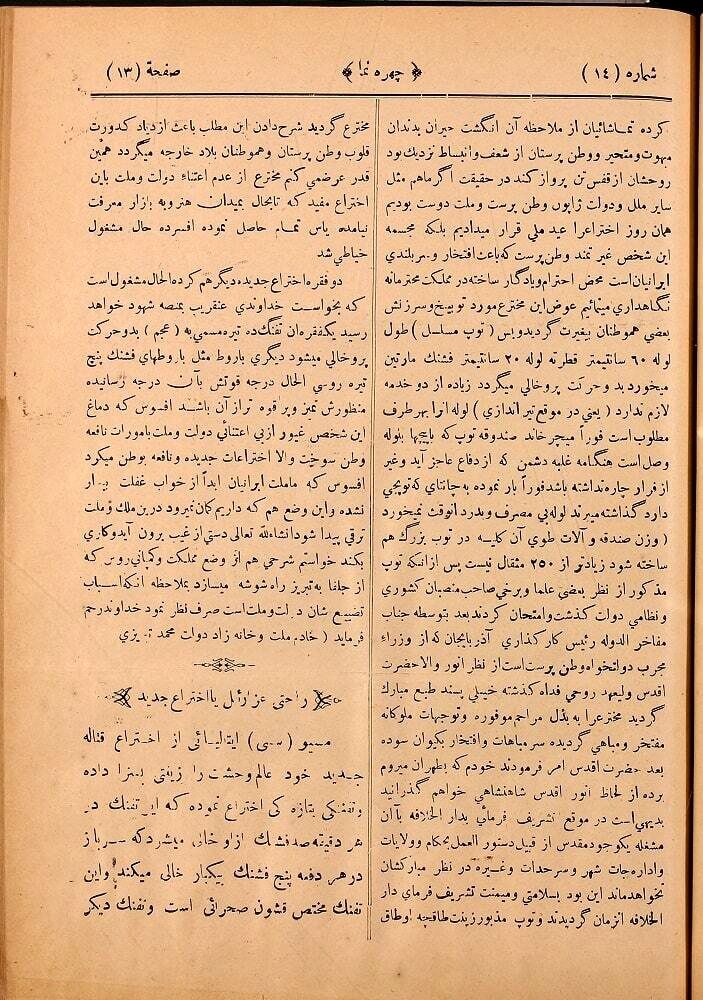 شماره (١٤)
﴿ چهره نما ﴾
صفحة (١٣)
كرده تماشائيان از ملاحظه آن انگشت حيران بدندان
مبهوت ومتحير ووطن پرستان از شعف وانبساط نزديك بود
روحشان از قفس تن پرواز كند در حقيقت اگر ماهم مثل
ساير ملل ودولت ژاپون وطن پرست وملت دوست بوديم
همان روز اختراعرا عيد ملي قرار ميداديم بلكه مجسمه
اين شخص غيرتمند وطن پرست كه باعث افتخار وسربلندي
ايرانيان است محض احترام ويادگار ساخته در مملكت محترمانه
نگاهداري مينمائيم عوض اين مخترع مورد توبيخ وسرزنش
بعضي هموطنان بيغيرت گرديد وبس ( توپ مسلسل ) طول
لوله ٦٠ سانتيمتر قطر ته لوله ٢٠ سانتيمتر فشنك مارتين
ميخورد بدو حركت پر وخالي ميگردد زياده از دو خدمه
لازم ندارد ( يعني در موقع تير اندازي ) لوله انرا بهر طرف
مطلوب است فوراً ميچرخاند صندوقه توپ كه باپيچها بلوله
وصل است هنگامه غلبه دشمن كه از دفاع عاجز آيد وغير
از فرار چاره نداشته باشد فوراً باز نموده به جانتاي كه توپچي
دارد گذاشته ميبرند لوله بي مصرف وبدرد انوقت نميخورد
( وزن صندقه وآلات طوي آن كليه در توپ بزرگ هم
ساخته شود زيادتر از ٢٥٠ مثقال نيست پس از انكه توپ
مذكور از نظر بعضي علما وبرخي صاحب منصبان كشوري
ونظامي دولت گذشت وامتحان كردند بعد بتوسطه جناب
مفاخر الدوله رئيس كارگذاري آذربايجان كه از وزراء
مجرب دولتخواه وطن پرست است از نظر انور والاحضرت
اقدس وليعهد روحي فداه گذشته خيلي پسند طبع مبارك
گرديد مخترعرا به بذل مراحم موفوره وتوجهات ملوكانه
مفتخر ومباهي گرديده سر مباهات وافتخار بكيوان سوده
بعد حضرت اقدس امر فرمودند خودم كه بطهران ميروم
برده از لحاظ انور اقدس شاهنشاهي خواهم گذرانيد
بديهي است در موقع تشريف فرمائي بدار الخلافه باآن
مشغله يكوجود مقدس از قبيل دستور العمل بحكام وولايات
واداره جات شهر وسرحدات وغيره در نظر مباركشان
نخواهد ماند اين بود بسلامتي وميمنت تشريف فرماي دار
الخلافه انزمان گرديدند وتوپ مذبور زينت طاقچه اوطاق
مخترع گرديد شرح دادن اين مطلب باعث ازدياد كدورت
قلوب وطن پرستان وهموطنان بلاد خارجه ميگردد همين
قدر عرض مي كنم مخترع از عدم اعتناء دولت وملت باين
اختراع مفيد كه تابحال بميدان هنر وبه بازار معرفت
نيامده ياس تمام حاصل نموده افسرده حال مشغول
خياطي شد
دو فقره اختراع جديده ديگر هم كرده الحال مشغول است
كه بخواست خداوندي عنقريب بمنصه شهود خواهد
رسيد يكفقره ان تفنگ ده تيره مسمي به ( عجم ) بدو حركت
پر وخالي ميشود ديگري باروط مثل باروطهاي فشنك پنج
تيره روسي الحال درجه قوتش بآن درجه رسانيده
منظورش تميز وپر قوه تر از آن باشد افسوس كه دماغ
اين شخص غيور از بي اعتنائي دولت وملت بامورات نافعه
وطن سوخت والا اختراعات جديده ونافعه بوطن ميكرد
افسوس كه ماملت ايرانيان ابداً از خواب غفلت بيدار
نشده واين وضع هم كه داريم گمان نميرود در بن ملك وملت
ترقي پيدا شود انشاءالله تعالى دستي از غيب برون آيد وكاري
بكند خواستم شرحي هم از وضع مملكت وكمپاني روس كه
از جلفا به تبريز راه شوشه ميسازد بملاحظه انكه اسباب
تضييع شان دولت وملت است صرف نظر نمود خداوند رحم
فرمايد ( خادم ملت وخانه زاد دولت محمد تبريزي
راحتي عزرائيل يا اختراع جديد
مسيو ( سي ) ايتاليائي از اختراع قتاله
جديد خود عالم وحشت را زينتي بسزا داده
وتفنگي بتازه كي اختراع نموده كه اين تفنك در
هر دقيقه صد فشنك از او خالي ميشود كه سرباز
در هر دفعه پنج فشنك بيكبار خالي ميكند واين
تفنك مختص قشون صحرائي است وتفنك ديكر